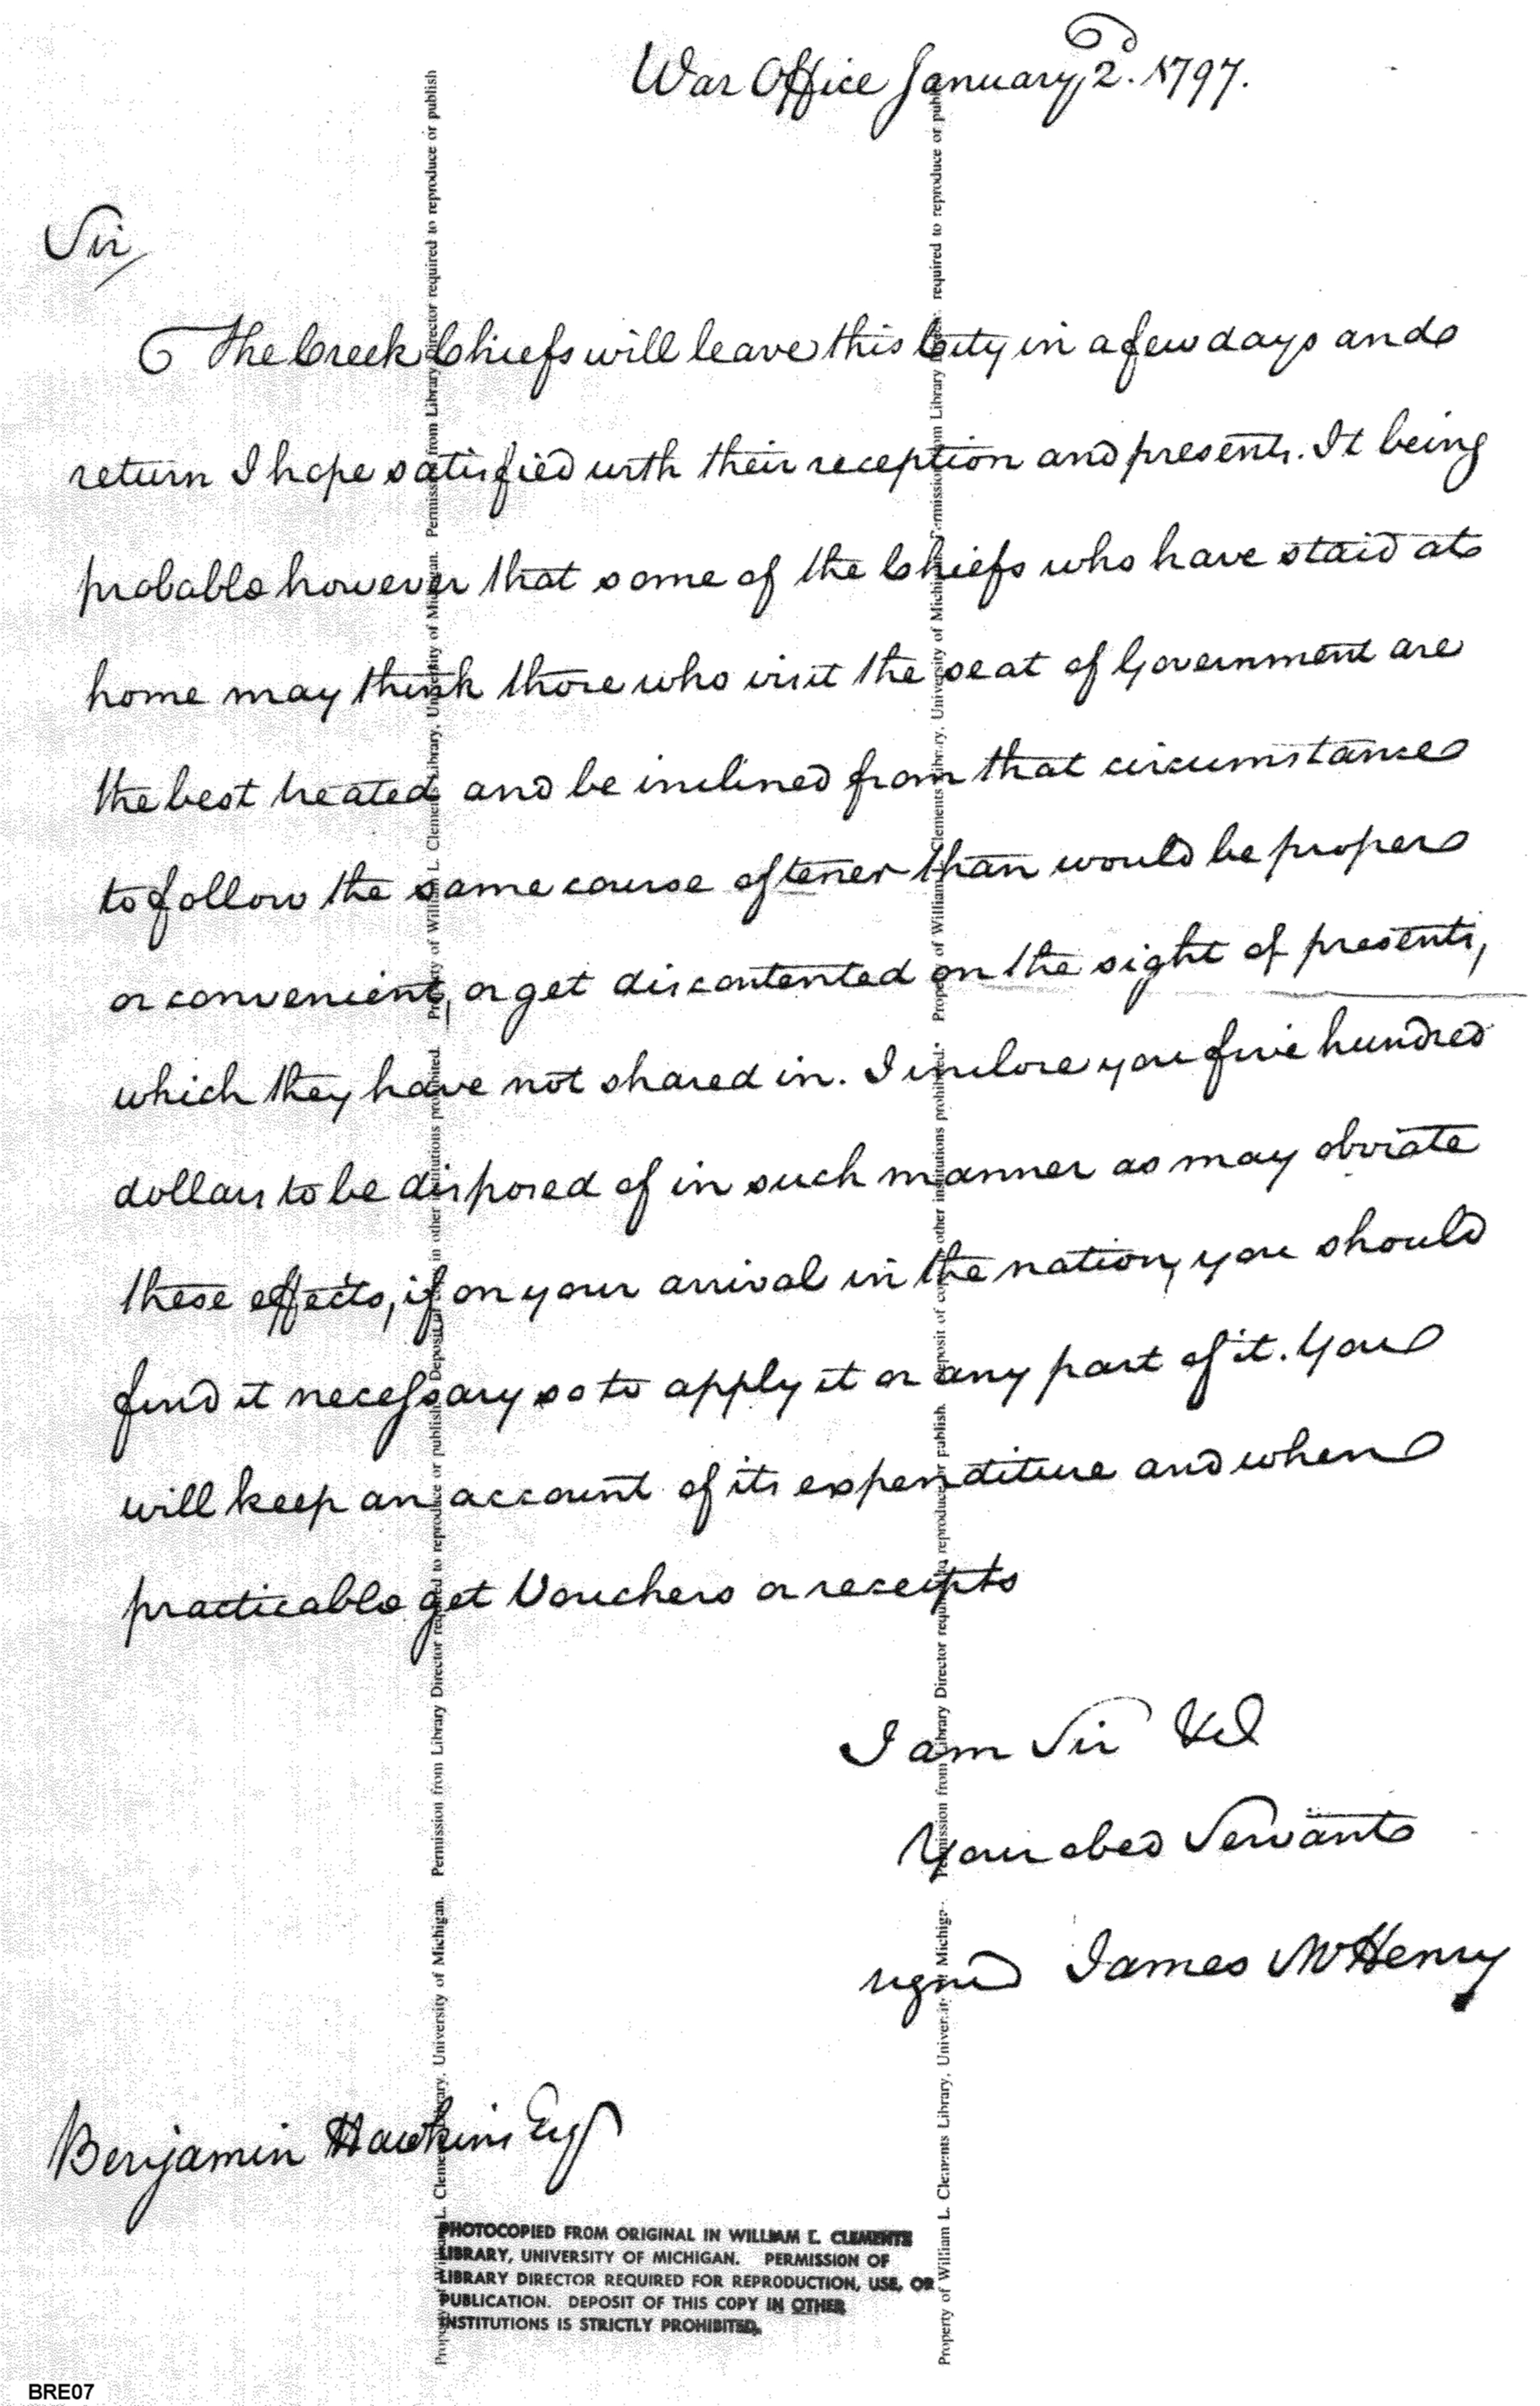 War Office January 2d. 1797.
Sir
The Creek Chiefs will leave this City in a few days and
return I hope satisfied with their reception and presents. It being
probable however that some of the Chiefs who have staid at
home may think those who visit the seat of Government are
the best treated and be inclined from that circumstance
to follow the same course oftener than would be proper
or convenient, or get discontented on the sight of presents,
which they have not shared in. I inclose you five hundred
dollars to be disposed of in such manner as may obviate
these effects, if on your arrival in the nation, you should
find it necessary so to apply it or any part of it. You
will keep an account of its expenditure and when
practicable get Vouchers or receipts
I am Sir &c
Your obed Servant
signed James McHenry
Benjamin Hawkins Esqr
PHOTOCOPIED FROM ORIGINAL IN WILLIAM L. CLEMENTS
LIBRARY, UNIVERSITY OF MICHIGAN. PERMISSION OF
LIBRARY DIRECTOR REQUIRED FOR REPRODUCTION, USE, OR
PUBLICATION. DEPOSIT OF THIS COPY IN OTHER
INSTITUTIONS IS STRICTLY PROHIBITED.
Property of William L. Clements Library, University of Michigan. Permission from Library Director required to reproduce or publish. Deposit of copies in other institutions prohibited. Property of William L. Clements Library, University of Michigan. Permission from Library Director required to reproduce or publish
Property of William L. Clements Library, University of Michigan. Permission from Library Director required to reproduce or publish. Deposit of copies in other institutions prohibited. Property of William L. Clements Library, University of Michigan. Permission from Library Director required to reproduce or publish
BRE07